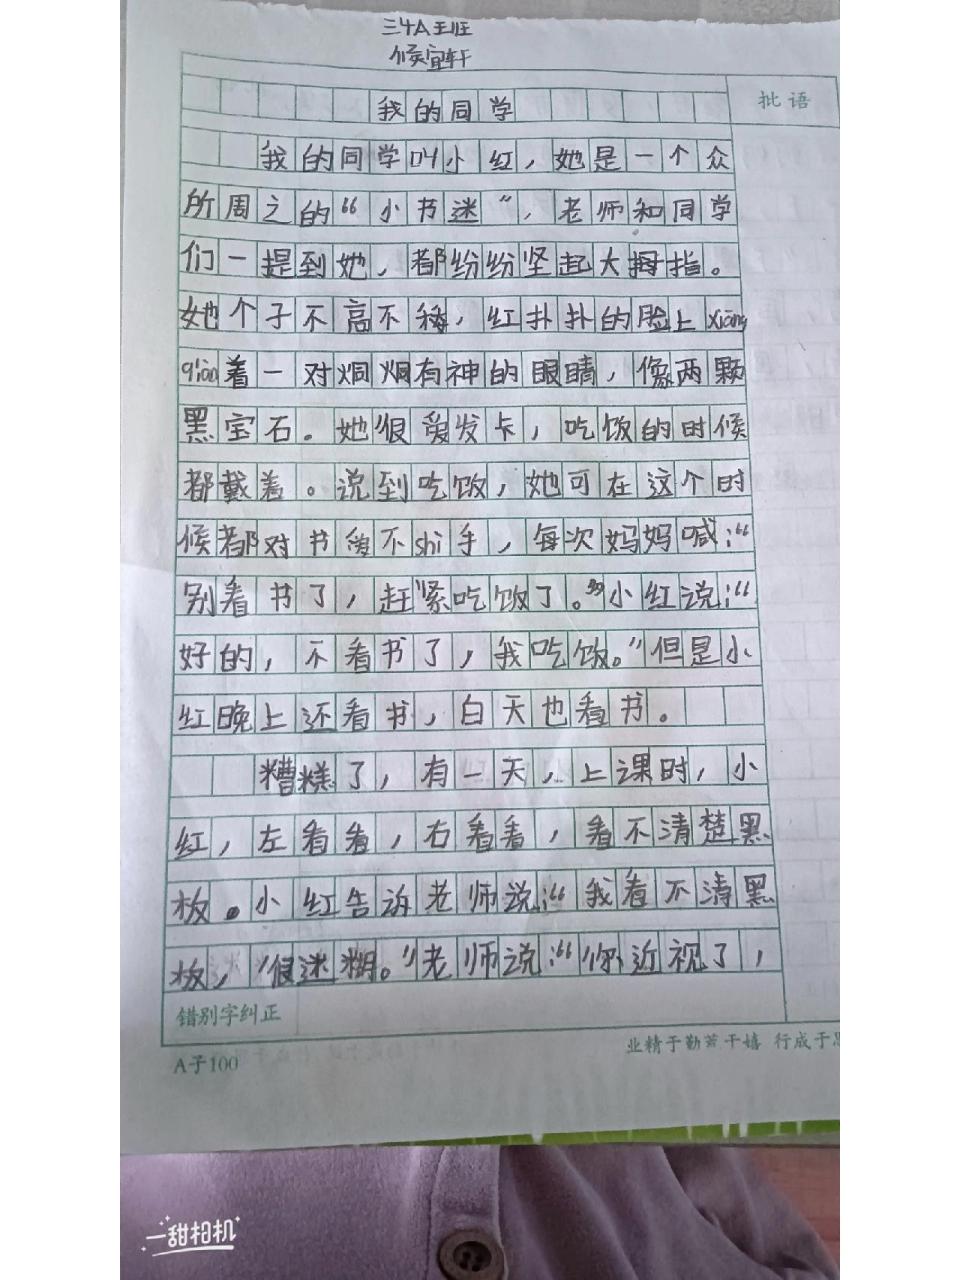 三4A班
候宜轩
批语
我的同学
我的同学叫小红，她是一个众
所周之的“小书迷”，老师和同学
们一提到她，都纷纷坚起大拇指。
她个子不高不矮，红扑扑的脸上xiāng
qiàn着一对炯炯有神的眼睛，像两颗
黑宝石。她很爱发卡，吃饭的时候
都戴着。说到吃饭，她可在这个时
候都对书爱不shì手，每次妈妈喊：“
别看书了，赶紧吃饭了。”小红说：“
好的，不看书了，我吃饭。”但是小
红晚上还看书，白天也看书。
糟糕了，有一天，上课时，小
红，左看看，右看看，看不清楚黑
板。小红告诉老师说：“我看不清黑
板，很迷糊。”老师说：“你近视了，
错别字纠正
A子100
业精于勤荒于嬉 行成于思
一甜相机